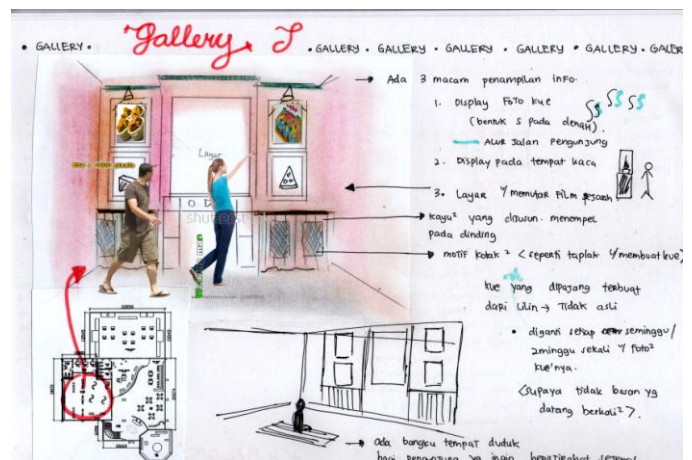 • GALLERY •
Gallery
• GALLERY • GALLERY • GALLERY • GALLERY • GALLERY • GALER
Ada 3 macam penampilan info.
1. Display Foto kue
(bentuk S pada denah).
Alur Jalan Pengunjung
2. Display pada tempat kaca
3. Layar y/ memutar Film sejarah
Layar
shutterst
kayu² yang disusun menempel
pada dinding
motif kotak² < seperti taplak y/ membuat kue)
kue yang dipajang terbuat
dari lilin → tidak asli
• diganti setiap seminggu/
2minggu sekali y/ foto²
kue'nya.
<supaya tidak bosan yg
datang berkali²>.
ada bangku tempat duduk
bagi pengunjung yg ingin